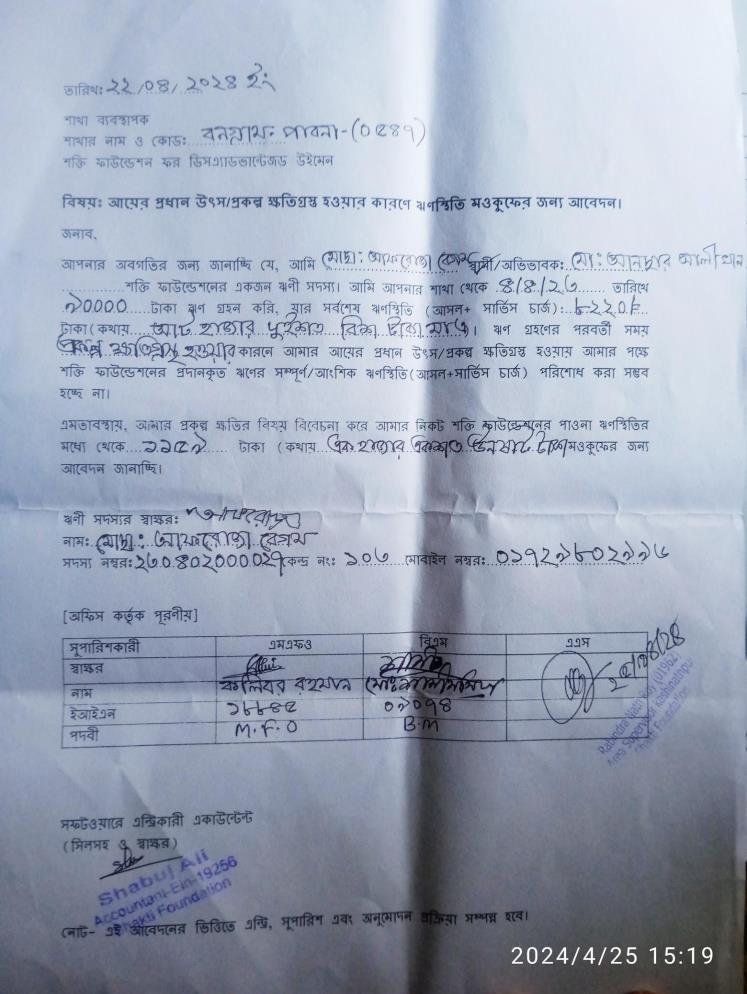 তারিখ: ২২/০৪/২০২৪ ইং
শাখা ব্যবস্থাপক
শাখার নাম ও কোড: বনগ্রাম- পাবনা-(0৫৪৭)
শক্তি ফাউন্ডেশন ফর ডিসএ্যাডভান্টেজড উইমেন
বিষয়: আয়ের প্রধান উৎস/প্রকল্প ক্ষতিগ্রস্ত হওয়ার কারণে ঋণস্থিতি মওকুফের জন্য আবেদন।
জনাব,
আপনার অবগতির জন্য জানাচ্ছি যে, আমি মোছা: আফরোজা বেগম স্বামী/অভিভাবক: মো: আনছার আলী খান
শক্তি ফাউন্ডেশনের একজন ঋণী সদস্য। আমি আপনার শাখা থেকে ৪/৪/২৩ তারিখে
৯0000 টাকা ঋণ গ্রহন করি, যার সর্বশেষ ঋণস্থিতি (আসল+ সার্ভিস চার্জ): ৮২২0/=
টাকা (কথায় আট হাজার দুইশত বিশ টাকা মাত্র। ঋণ গ্রহণের পরবর্তী সময়
প্রকল্প ক্ষতিগ্রস্থ হওয়ার কারনে আমার আয়ের প্রধান উৎস/প্রকল্প ক্ষতিগ্রস্ত হওয়ায় আমার পক্ষে
শক্তি ফাউন্ডেশনের প্রদানকৃত ঋণের সম্পূর্ণ/আংশিক ঋণস্থিতি (আসল+সার্ভিস চার্জ) পরিশোধ করা সম্ভব
হচ্ছে না।
এমতাবস্থায়, আমার প্রকল্প ক্ষতির বিষয় বিবেচনা করে আমার নিকট শক্তি ফাউন্ডেশনের পাওনা ঋণস্থিতির
মধ্যে থেকে ১১৫৯ টাকা (কথায় এক হাজার একশত উনষাট টাকা মওকুফের জন্য
আবেদন জানাচ্ছি।
ঋণী সদস্যর স্বাক্ষর: আফরোজা
নাম: মোছা: আফরোজা বেগম
সদস্য নম্বর: ২৩0৪0২0000২৭ কেন্দ্র নং: ১0৩ মোবাইল নম্বর: 0১৭২৯৮0২৯৯৬
[অফিস কর্তৃক পূরণীয়]
সুপারিশকারী এমএফও বিএম এএস
স্বাক্ষর
নাম কলিবর রহমান
ইআইএন ১৮৮৪৫ 0৯0৭৪
পদবী M.F.O B.M
Area Supervisor
Shakti Foundation
সফটওয়ারে এন্ট্রিকারী একাউন্টেন্ট
(সিলসহ ও স্বাক্ষর)
Shabuj Ali
Accountant-Ein-19256
Shakti Foundation
নোট- এই আবেদনের ভিত্তিতে এন্ট্রি, সুপারিশ এবং অনুমোদন প্রক্রিয়া সম্পন্ন হবে।
2024/4/25 15:19